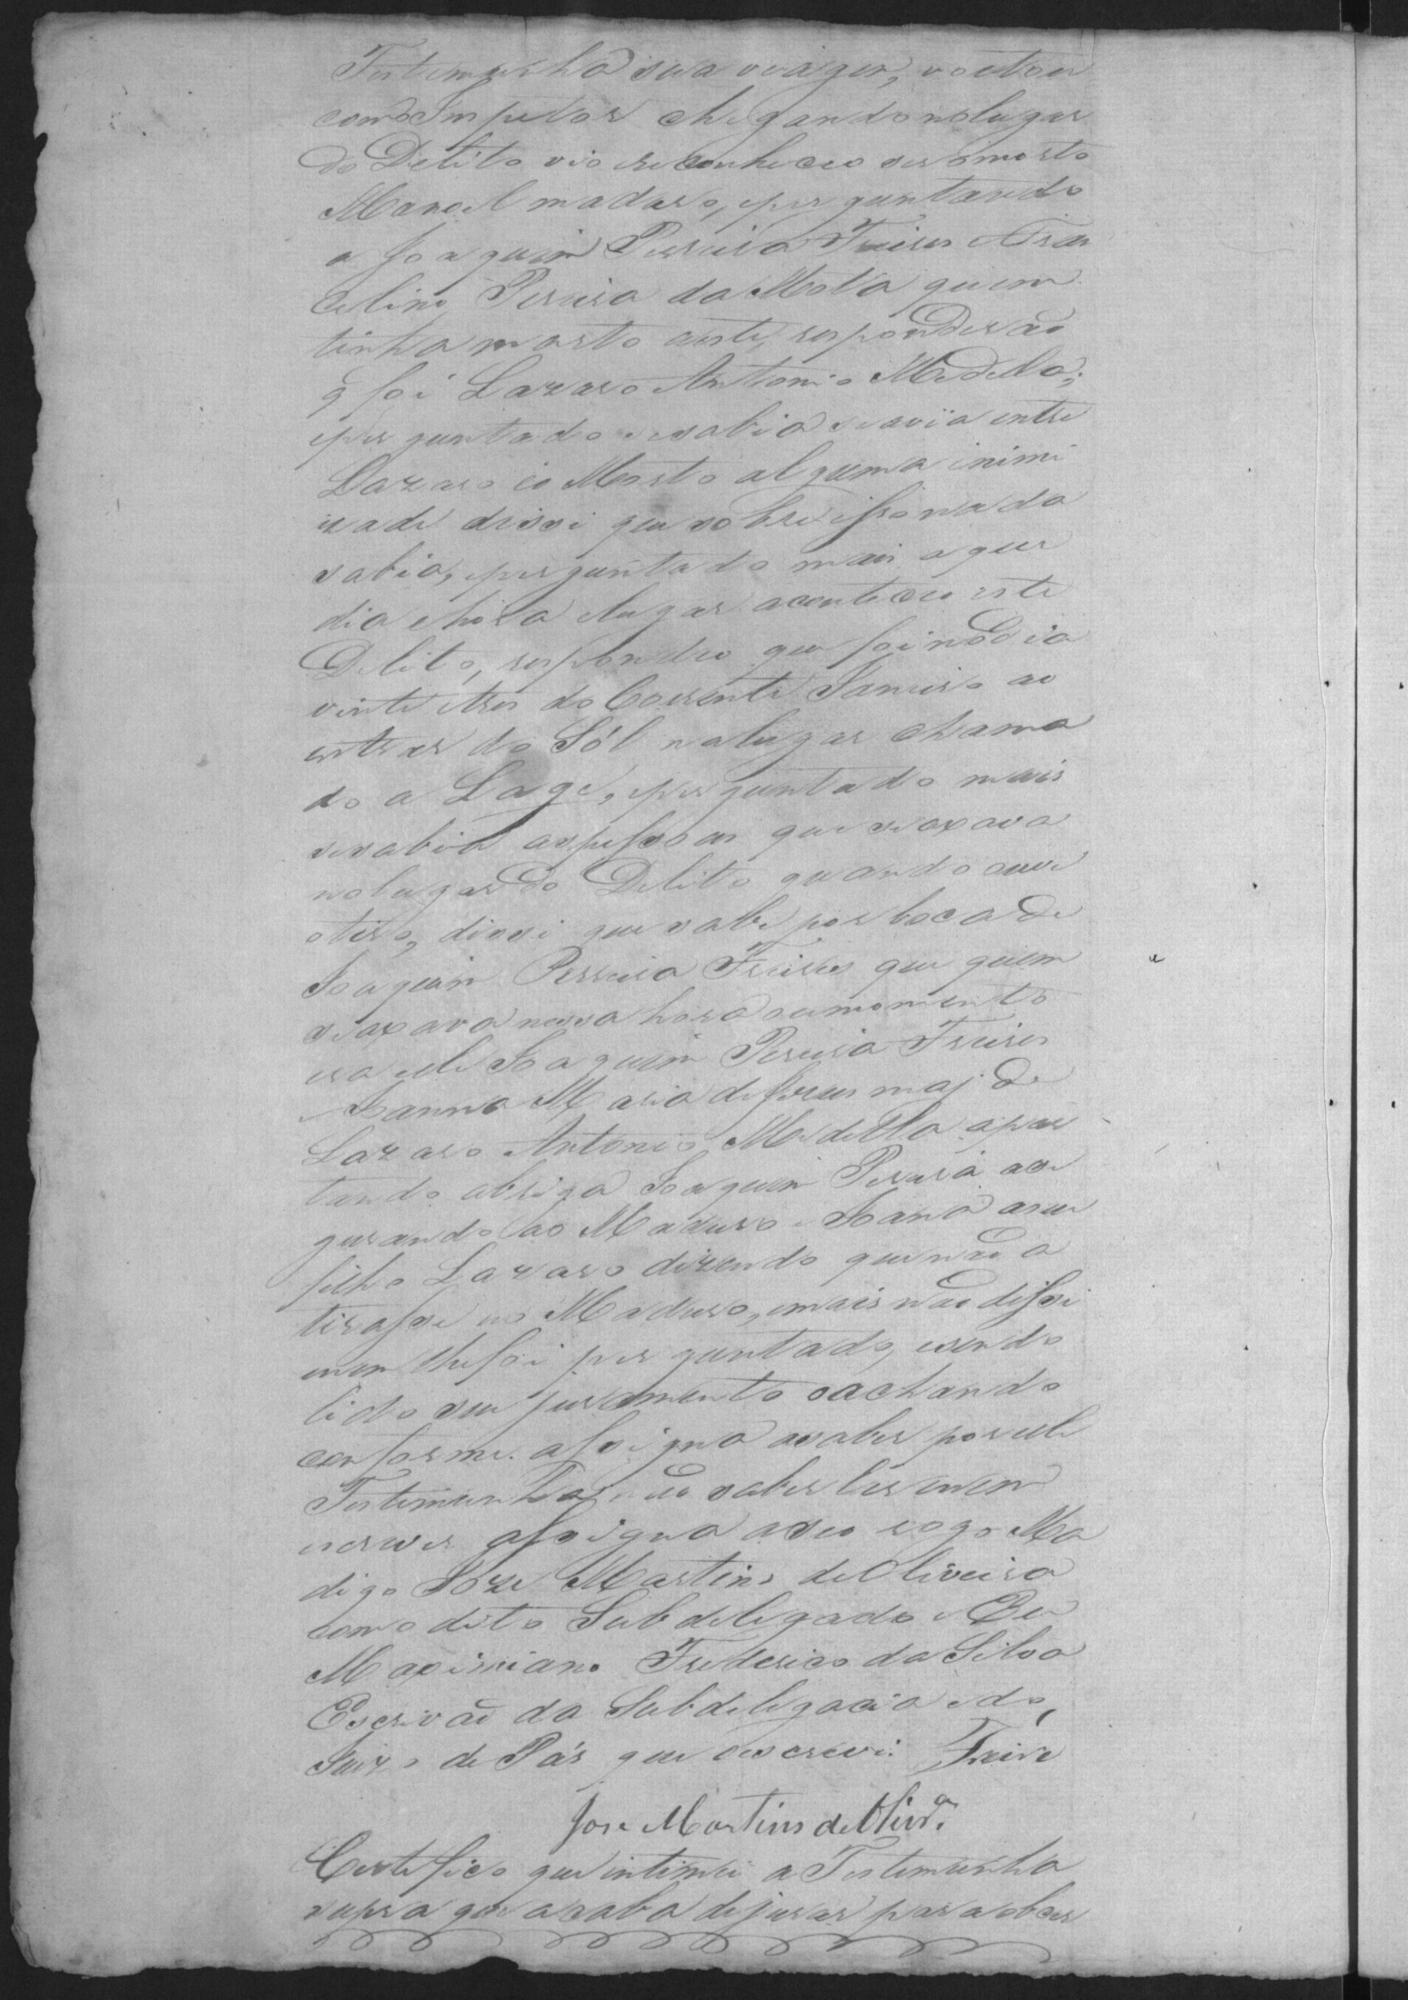 Testemunha sua viagem, voltou
com o Inspetor chegando no lugar
do Delito vio e reconheceo ser o morto
Manoel maduro, eperguntando
a Joaquim Pereira Freires e Fran
celino Pereira da Motta quem
tinha morto aeste, responderão
q foi Lazaro Antonio Medella;
eperguntado sesabia seavia entre
Lazaro eo Morto alguma inimi
zade dissi que sobre isso nada
sabia, eperguntado mais aque
dia ehora elugar aconteceo este
Delito, respondeo que foi no dia
vinte etres do Corrente Janeiro ao
entrar do Sól nolugar chama
do a Lage, eperguntado mais
sesabia aspessoas que seaxava
nolugar do Delito quando ouve
otiro, dissi que sabe por boca de
Joaquim Pereira Freires que quem
seaxava nessa hora oumomento
era elle Joaquim Pereira Freires
e Joanna Maria de Jesus maj de
Lazaro Antonio Medella apar
tando abriga Joaquim Pereira ase
gurando ao Maduro e Joana aseu
filho Lazaro dizendo que não a
tirasse no Maduro, emais não dissi
nem lhefoi perguntado, esendo
lido seu juramento oachando
conforme. assigna asaber por elle
Testemunha não saber ler enem
escrever assigna aseo rogo Ma
digo Joze Martins de Oliveira
como dito Subdelegado e Eu
Maximiano Frederico da Silva
Escrivão da Subdelegacia edo,
Juizo de Pás que oescrevi. Freire
Jose Martins de Olivrª.
Certefico que intimei a Testemunha
supra que acaba dejurar para